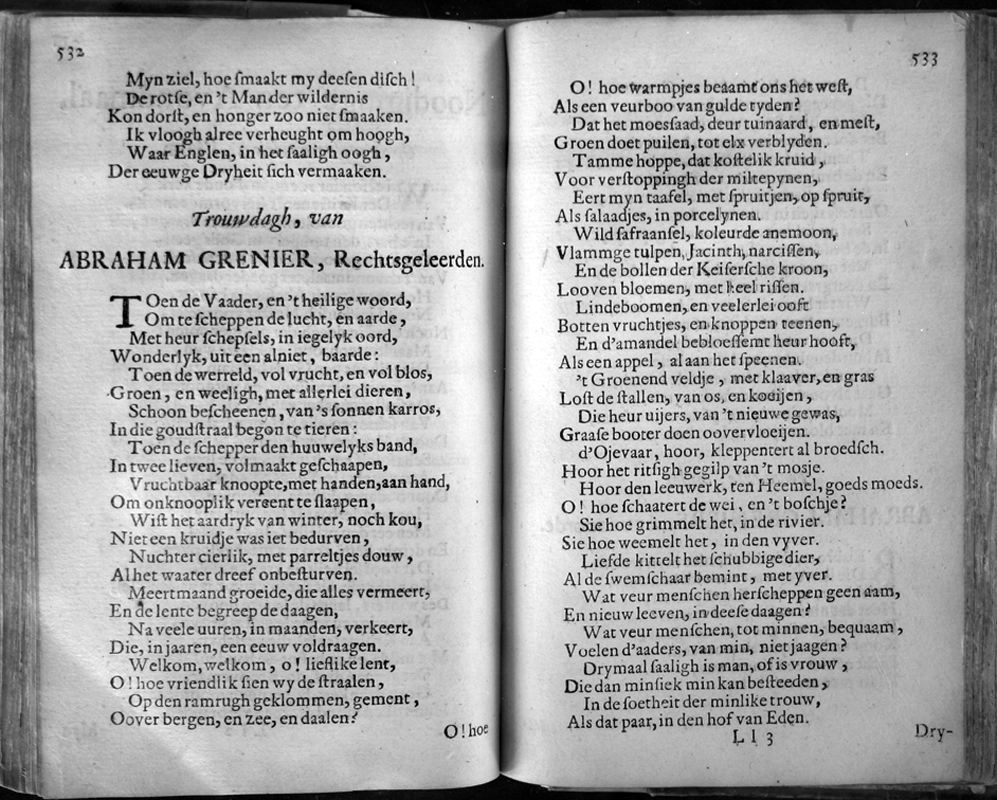 532
Myn ziel, hoe ſmaakt my deeſen diſch!
De rotſe, en 't Man der wildernis
Kon dorſt, en honger zoo niet ſmaaken.
Ik vloogh alree verheught om hoogh,
Waar Englen, in het ſaaligh oogh,
Der eeuwge Dryheit ſich vermaaken.
Trouwdagh, van
ABRAHAM GRENIER, Rechtsgeleerden.
TOen de Vaader, en 't heilige woord,
Om te ſcheppen de lucht, en aarde,
Met heur ſchepſels, in iegelyk oord,
Wonderlyk, uit een alniet, baarde:
Toen de werreld, vol vrucht, en vol blos,
Groen, en weeligh, met allerlei dieren,
Schoon beſcheenen, van 's ſonnen karros,
In die goudſtraal begon te tieren:
Toen de ſchepper den huuwelyks band,
In twee lieven, volmaakt geſchaapen,
Vruchtbaar knoopte, met handen, aan hand,
Om onknooplik vereent te ſlaapen,
Wiſt het aardryk van winter, noch kou,
Niet een kruidje was iet bedurven,
Nuchter cierlik, met parreltjes douw,
Al het waater dreef onbeſturven.
Meertmaand groeide, die alles vermeert,
En de lente begreep de daagen,
Na veele uuren, in maanden, verkeert,
Die, in jaaren, een eeuw voldraagen.
Welkom, welkom, o! lieflike lent,
O! hoe vriendlik ſien wy de ſtraalen,
Op den ramrugh geklommen, gement,
Oover bergen, en zee, en daalen?
O! hoe
533
O! hoe warmpjes beaamt ons het weſt,
Als een veurboo van gulde tyden?
Dat het moesſaad, deur tuinaard, en meſt,
Groen doet puilen, tot elx verblyden.
Tamme hoppe, dat koſtelik kruid,
Voor verſtoppingh der miltepynen,
Eert myn taafel, met ſpruitjen, op ſpruit,
Als ſalaadjes, in porcelynen.
Wild ſafraanſel, koleurde anemoon,
Vlammge tulpen, Jacinth, narciſſen,
En de bollen der Keiſerſche kroon,
Looven bloemen, met heel riſſen.
Lindeboomen, en veelerlei ooft
Botten vruchtjes, en knoppen teenen,
En d'amandel bebloeſſemt heur hooft,
Als een appel, al aan het ſpeenen.
't Groenend veldje, met klaaver, en gras
Loſt de ſtallen, van os, en kooijen,
Die heur uijers, van 't nieuwe gewas,
Graaſe booter doen oovervloeijen.
d'Ojevaar, hoor, kleppentert al broedſch.
Hoor het ritſigh gegilp van 't mosje.
Hoor den leeuwerk, ten Heemel, goeds moeds.
O! hoe ſchaatert de wei, en 't boſchje?
Sie hoe grimmelt het, in de rivier.
Sie hoe weemelt het, in den vyver.
Liefde kittelt het ſchubbige dier,
Al de ſwemſchaar bemint, met yver.
Wat veur menſchen herſcheppen geen aam,
En nieuw leeven, in deeſe daagen?
Wat veur menſchen, tot minnen, bequaam,
Voelen d'aaders, van min, niet jaagen?
Drymaal ſaaligh is man, of is vrouw,
Die dan minſiek min kan beſteeden,
In de ſoetheit der minlike trouw,
Als dat paar, in den hof van Eden.
Ll 3
Dry-